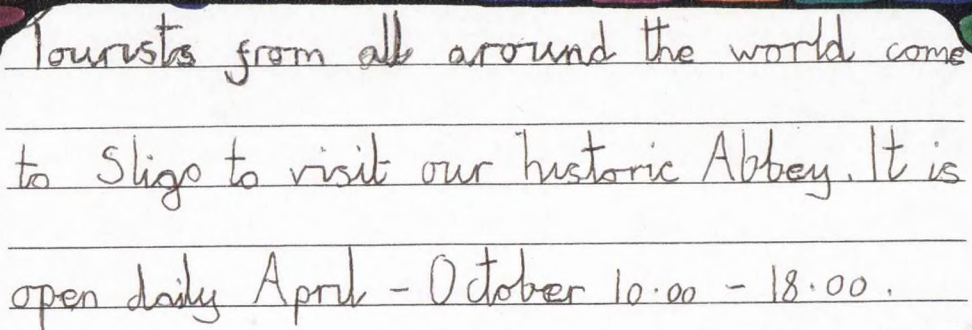 Tourists from all around the world come
to Sligo to visit our historic Abbey. It is
open daily April - October 10.00 - 18.00.